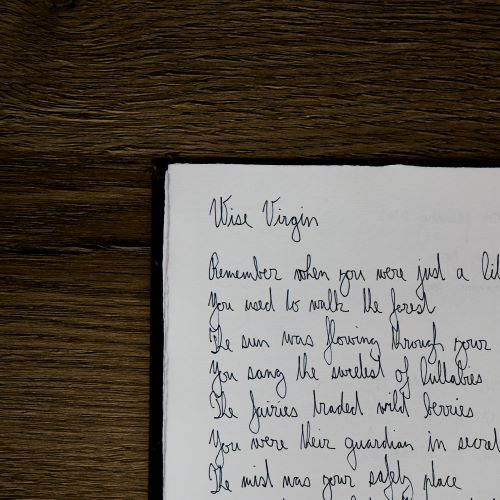 Wise Virgin
Remember when you were just a lit
You used to walk the forest
The sun was flowing through your
You sang the sweetest of lullabies
The fairies traded wild berries
You were their guardian in secret
The mist was your safety place